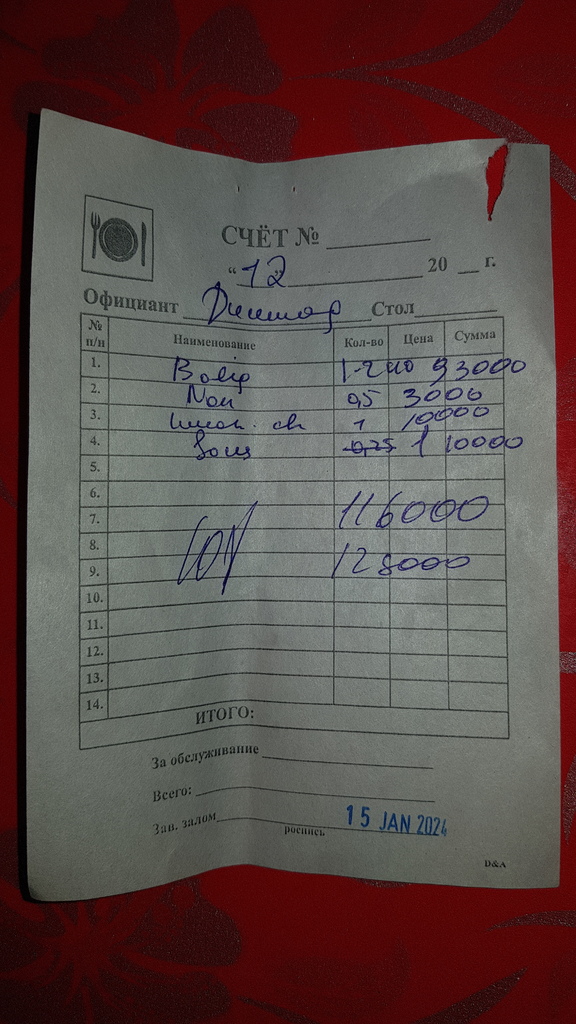 СЧЁТ № ________
“12” ________ 20 __ г.
Официант ________ Стол ________
№ п/п Наименование Кол-во Цена Сумма
1. 93000
2. Non 0,5 3000
3. 1 10000
4. 0,25 1 10000
5.
6.
7. 116000
8.
9. 128000
10.
11.
12.
13.
14.
ИТОГО:
За обслуживание ________
Всего: ________
Зав. залом ________
роспись
15 JAN 2024
D&A